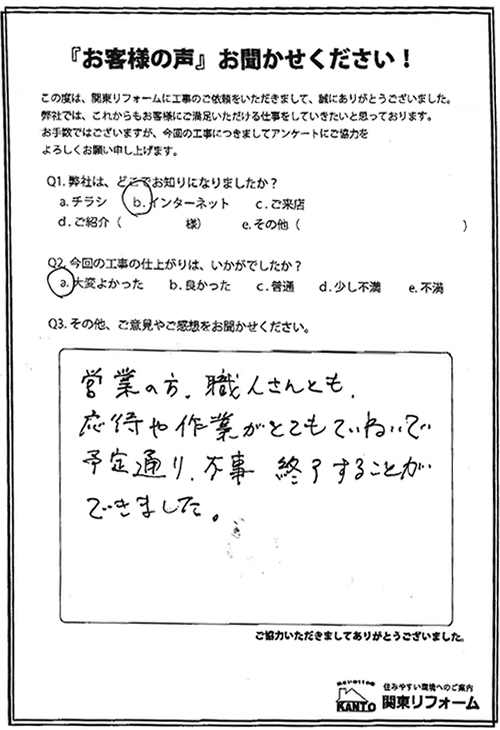 『お客様の声』お聞かせください！
この度は、関東リフォームに工事のご依頼をいただきまして、誠にありがとうございました。
弊社では、これからもお客様にご満足いただける仕事をしていきたいと思っております。
お手数ではございますが、今回の工事につきましてアンケートにご協力を
よろしくお願い申し上げます。
Q1. 弊社は、どこでお知りになりましたか？
a. チラシ b. インターネット c. ご来店
d. ご紹介（ 様） e. その他（ ）
Q2. 今回の工事の仕上がりは、いかがでしたか？
a. 大変よかった b. 良かった c. 普通 d. 少し不満 e. 不満
Q3. その他、ご意見やご感想をお聞かせください。
営業の方、職人さんとも、
応待や作業がとてもていねいで
予定通り、不事 終了することが
できました。
ご協力いただきましてありがとうございました。
住みやすい環境へのご案内
KANTO 関東リフォーム